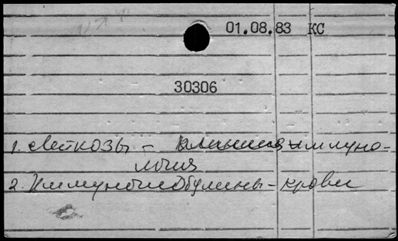 01.08.83 КС
30306
1. Лейкозы - клиника иммуно-
логия
2. Иммуноглобулины - крови